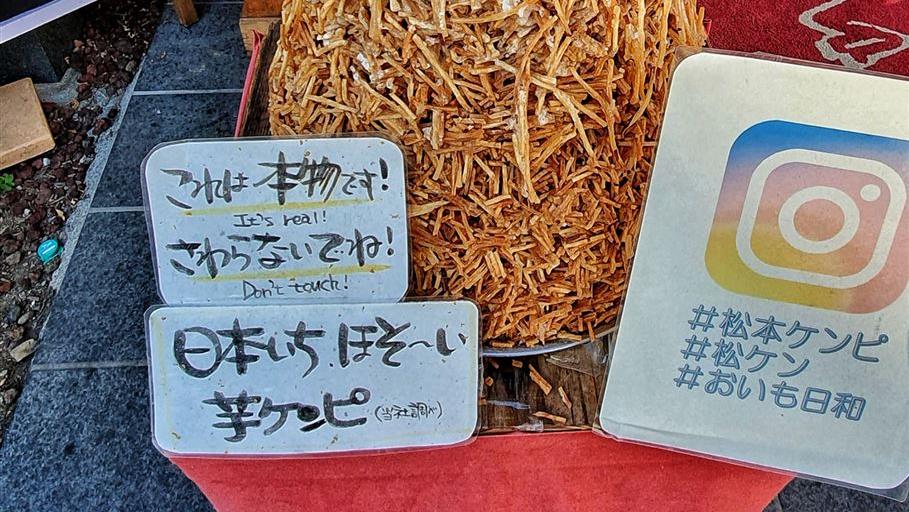 これは本物です!
It's real!
さわらないでね!
Don't touch!
日本いち、ほそ〜い
芋ケンピ(当社調べ)
#松本ケンピ
#松ケン
#おいも日和